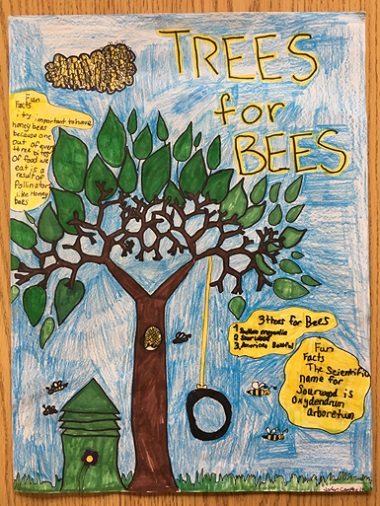 TREES
for
BEES
Fun
Facts
important to have
honey bees
because one
out of every
three bites
of food we
eat is a
result of
Pollinators
like Honey
bees
3 trees for Bees
1 magnolia
2 Sourwood
3, American
Fun
Facts
The Scientific
name for
Sourwood is
Oxydendrum
arboretum